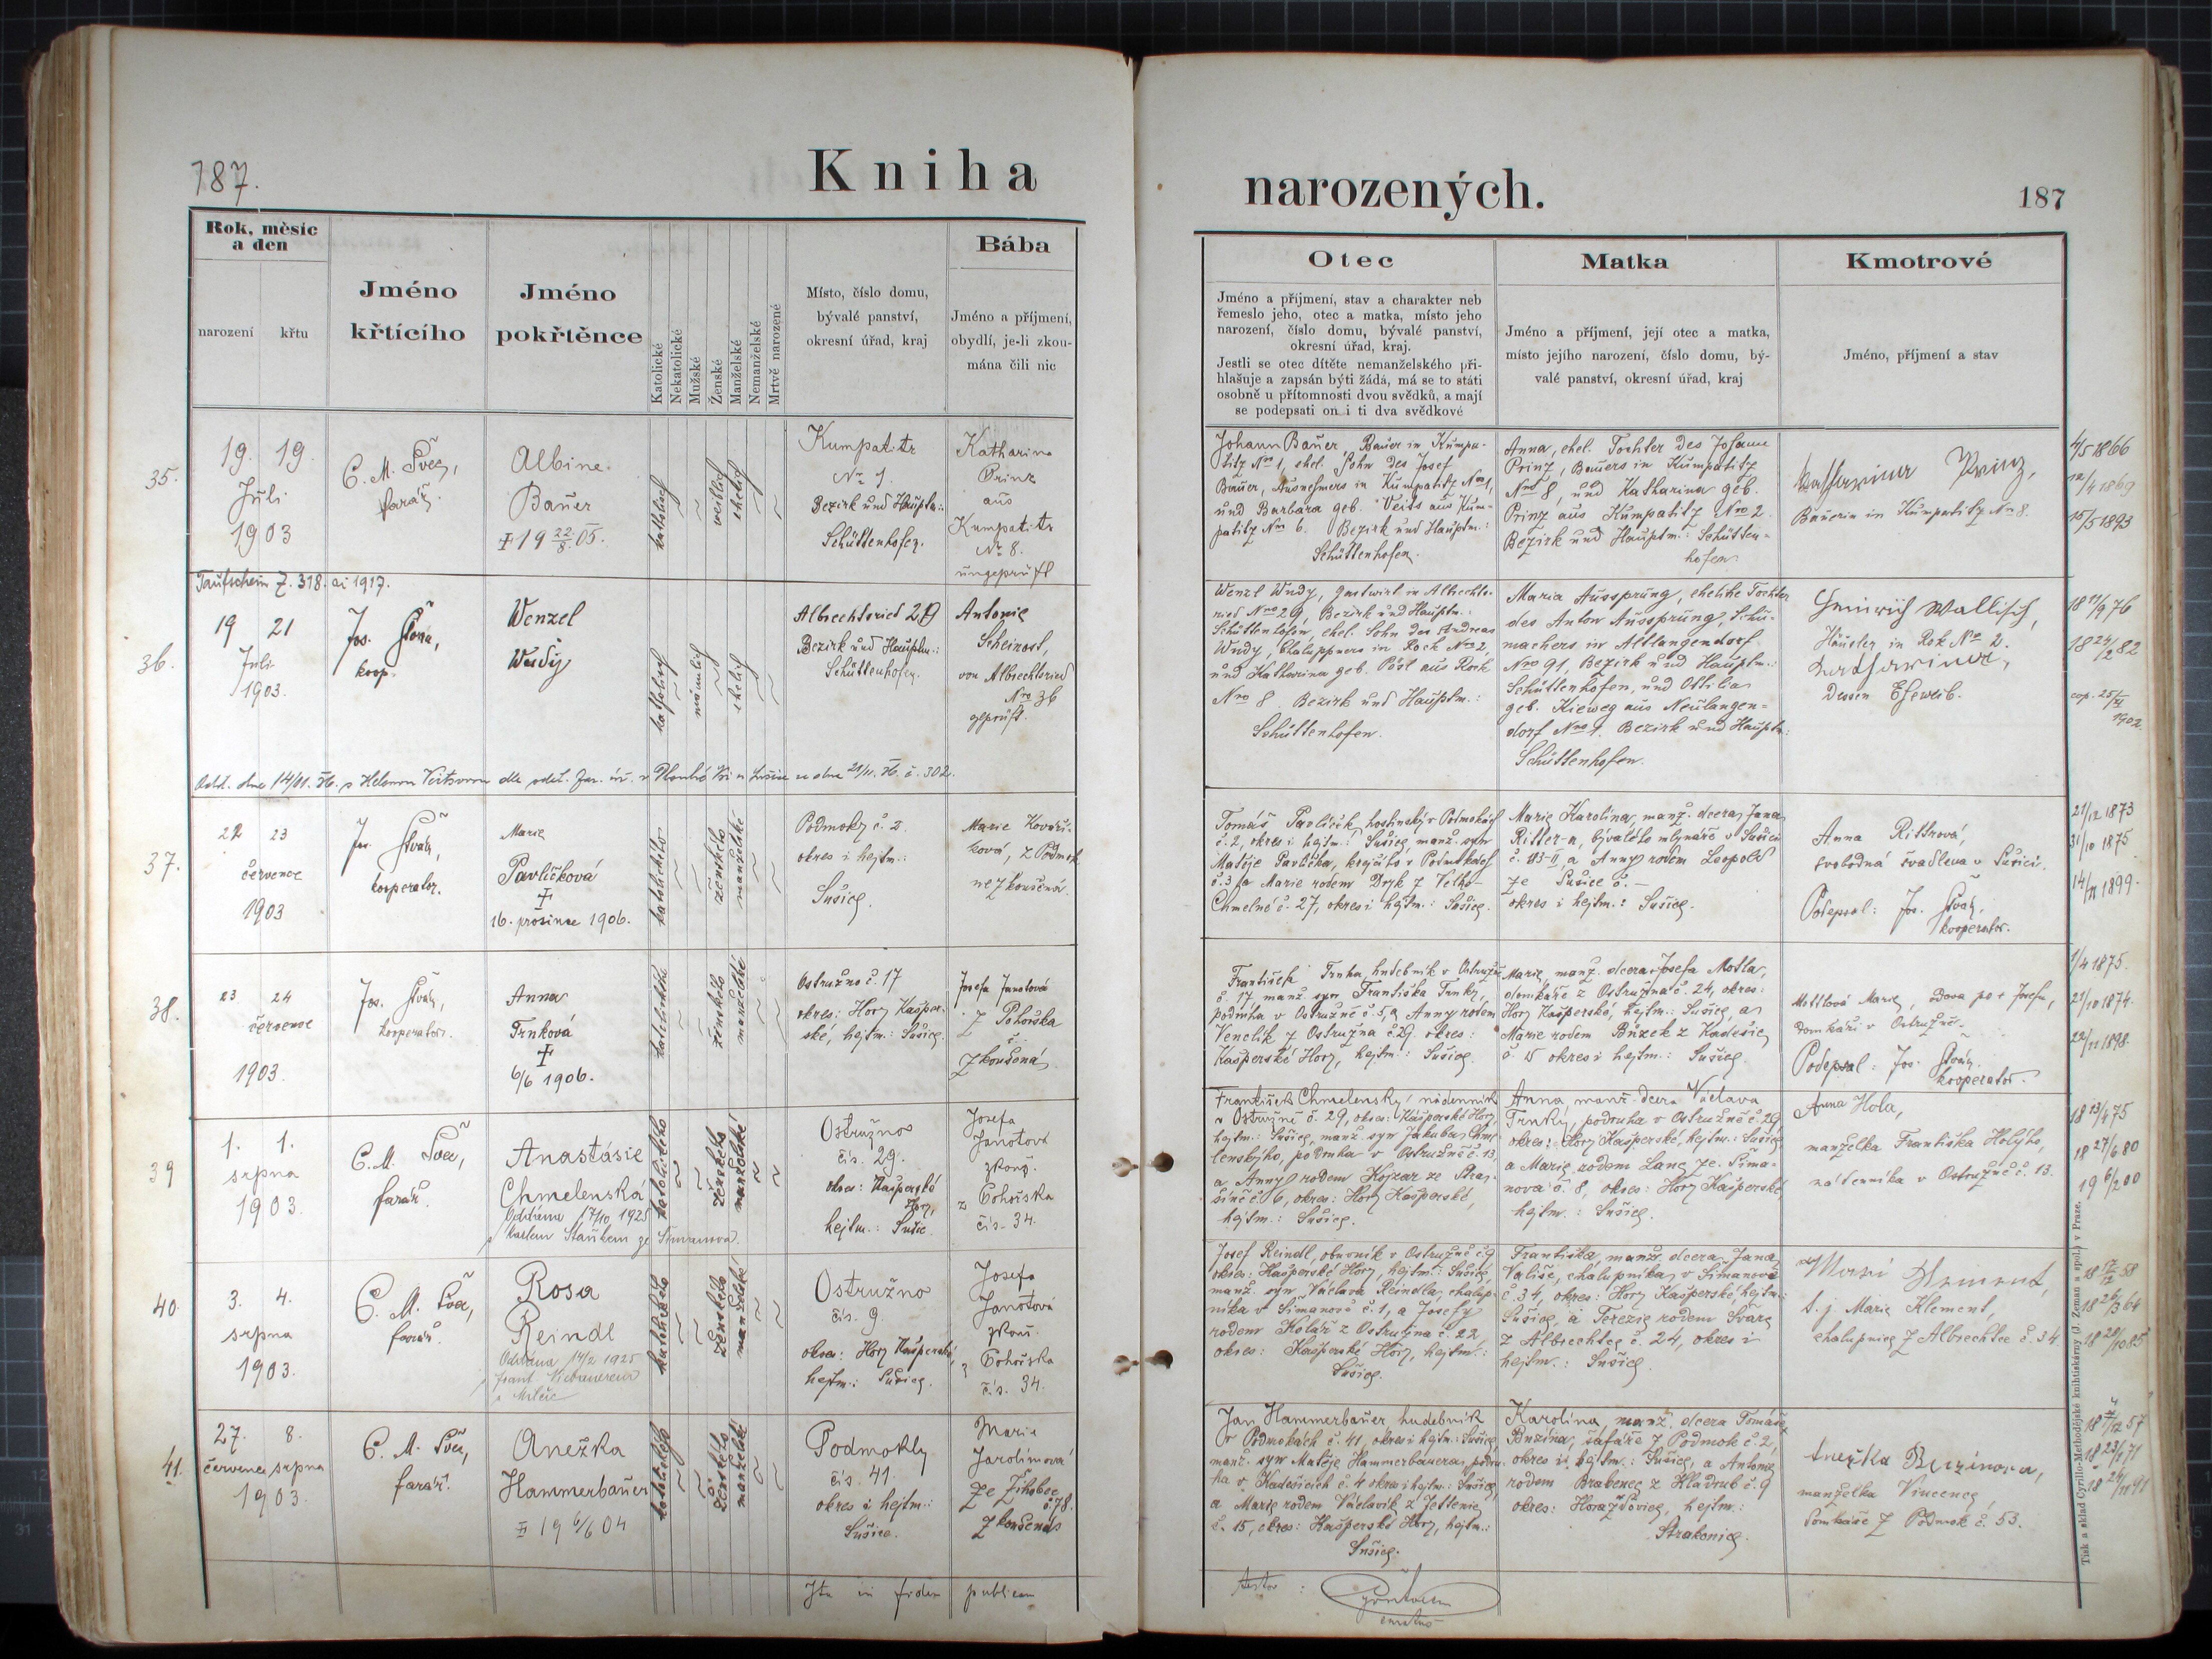 187.
Kniha
narozených.
187
Rok, měsíc
a den
narození
křtu
Jméno
křtícího
Jméno
pokřtěnce
Katolické
Nekatolické
Mužské
Ženské
Manželské
Nemanželské
Mrtvě narozené
Místo, číslo domu,
bývalé panství,
okresní úřad, kraj
Bába
Jméno a příjmení,
obydlí, je-li zkou-
mána čili nic
Otec
Jméno a příjmení, stav a charakter neb
řemeslo jeho, otec a matka, místo jeho
narození, číslo domu, bývalé panství,
okresní úřad, kraj.
Jestli se otec dítěte nemanželského při-
hlašuje a zapsán býti žádá, má se to státi
osobně u přítomnosti dvou svědků, a mají
se podepsati on i ti dva svědkové
Matka
Jméno a příjmení, její otec a matka,
místo jejího narození, číslo domu, bý-
valé panství, okresní úřad, kraj
Kmotrové
Jméno, příjmení a stav
35.
19. 19.
Juli
1903
C. M. Švec,
farář.
Albine
Bauer
katholisch
weiblich
ehelich
Kumpatitz
Nr 1.
Bezirk und Hauptm.:
Schüttenhofen.
Katharina
Prinz
aus
Kumpatitz
Nr 8.
ungeprüft
Johann Bauer Bauer in Kumpa-
titz Nro 1, ehel. Sohn des Josef
Bauer, Ausnehmers in Kumpatitz Nro 1,
und Barbara geb. Veits aus Kum-
patitz Nro 6. Bezirk und Hauptm.:
Schüttenhofen.
Anna, ehel. Tochter des Johann
Prinz, Bauers in Kumpatitz
Nro 8, und Katharina geb.
Prinz aus Kumpatitz Nro 2.
Bezirk und Hauptm.: Schütten-
hofen
Katharina Prinz,
Bäuerin in Kumpatitz Nr 8.
4/5 1866
12/4 1869
15/5 1893
Taufschein Z. 318. ai 1917.
36.
19 21
Juli
1903.
Jos.
koop.
Wenzel
Wudy
katholisch
männlich
ehelich
Albrechtsried 29
Bezirk und Hauptm.:
Schüttenhofen.
Antonie
Scheinost,
von Albrechtsried
Nro 36
geprüft.
Wenzl Wudy, Gastwirt in Albrechts-
ried Nro 29, Bezirk und Hauptm.:
Schüttenhofen, ehel. Sohn des Andreas
Wudy, Chaluppners in Rock Nro 2,
und Katharina geb. Pösl aus Rock
Nro 8 Bezirk und Hauptm.:
Schüttenhofen.
Maria Aussprung, eheliche Tochter
des Anton Aussprung, Schu-
machers in Altlangendorf
Nro 91, Bezirk und Hauptm.:
Schüttenhofen, und Ottilia
geb. Kieweg aus Neulangen-
dorf Nro 1. Bezirk und Hauptm.:
Schüttenhofen.
Heinrich Wallisch,
Häusler in Rok Nro 2.
Katharina,
dessen Eheweib.
18 11/9 76
18 24/2 82
cop. 25/
1902
37.
22 23
července
1903
Jos.
kooperator.
Marie
Pavlíčková
16. prosince 1906.
katolického
ženského
manželské
Podmoky č. 2.
okres i hejtm.:
Sušice.
Marie Kovaří-
ková, z Podmok
nezkoušená.
Tomáš Pavlíček, hostinský v Podmokách
č. 2, okres i hejtm.: Sušice, manž. syn
Matěje Pavlíčka, krejčího v Podmokách
č. 3 a Marie rodem Dryk z Velko-
Chmelné č. 27, okres i hejtm.: Sušice.
Marie Karolina, manž. dcera Jana
Ritter-a, bývalého mlynáře v Sušici
č. 113-II, a Anny rodem Leopold
ze Sušice č. —
okres i hejtm.: Sušice.
Anna Rittrová,
svobodná švadlena v Sušici.
Podepsal: Jos.
kooperator.
21/12 1873
31/10 1875
38.
23 24
července
1903.
Jos.
kooperator.
Anna
Trnková
6/6 1906.
katolického
ženského
manželské
Ostružno č. 17
okres: Hory Kašper-
ské, hejtm.: Sušice.
Josefa Janotová
z Pohorska
zkoušená
František Trnka, hudebník v Ostružně
č. 17 manž. syn Františka Trnky,
podruha v Ostružně č. 5, a Anny rodem
Venclík z Ostružna č. 29. okres:
Kašperské Hory, hejtm.: Sušice.
Marie, manž. dcera Josefa Motla,
domkáře z Ostružna č. 24, okres:
Hory Kašperské, hejtm.: Sušice, a
Marie rodem Buzek z Kadešic
č. 15 okres i hejtm.: Sušice.
Mottlová Marie, vdova po + Josefu,
domkáři v Ostružně.
Podepsal: Jos.
kooperator.
1/4 1875.
21/10 1874.
22/11 1898.
39
1. 1.
srpna
1903.
C. M. Švec,
farář.
Anastásie
Chmelenská
Oddána 17/10 1925
katolického
ženského
manželské
Ostružno
čís. 29.
okres: Kašperské
Hory,
hejtm.: Sušice.
Josefa
Janotová
zkouš.
z Pohorska
čís. 34.
František Chmelenský, nádenník
v Ostružně č. 29, okres: Kašperské Hory,
hejtm.: Sušice, manž. syn Jakuba Chme-
lenského, podruha v Ostružně č. 13,
a Anny rodem Kojzar ze Stra-
šína č. 6, okres: Hory Kašperské,
hejtm.: Sušice.
Anna, manž. dcera Václava
Trnky, podruha v Ostružně č. 29,
okres: Hory Kašperské, hejtm.: Sušice,
a Marie rodem Lang ze Šima-
nova č. 8, okres: Hory Kašperské
hejtm.: Sušice.
Anna Hola,
manželka Františka Holého,
nádenníka v Ostružně č. 13.
18 13/4 75
18 27/6 80
19 6/2 00
40.
3. 4.
srpna
1903.
C. M. Švec,
farář.
Rosa
Reindl
Oddána 14/2 1925
katolického
ženského
manželské
Ostružno
čís. 9.
okres: Hory Kašperské,
hejtm.: Sušice.
Josefa
Janotová
zkouš.
z Pohorska
čís. 34.
Josef Reindl, obuvník v Ostružně č. 9
okres: Kašperské Hory, hejtm.: Sušice
manž. syn Václava Reindla, chalup-
níka v Šimanově č. 1, a Josefy
rodem Kolář z Ostružna č. 22,
okres: Kašperské Hory, hejtm.:
Sušice.
Františka, manž. dcera Jana
Vališe, chalupníka v Šimanově
č. 34, okres: Hory Kašperské, hejtm.:
Sušice, a Terezie rodem Švarc
z Albrechtce č. 24, okres i
hejtm.: Sušice.
t. j. Marie Klement,
chalupnice z Albrechtce č. 34.
41.
27. 8.
července srpna
1903.
C. M. Švec,
farář.
Anežka
Hammerbauer
19 6/6 04
katolického
ženského
manželské
Podmokly
čís. 41.
okres i hejtm.:
Sušice.
Marie
Jarolímová
ze Žihobec
č. 78.
zkoušená
Jan Hammerbauer, hudebník
v Podmokách č. 41, okres i hejtm.: Sušice,
manž. syn Matěje Hammerbauera, podru-
ha v Kadešicích č. 4 okres i hejtm.: Sušice,
a Marie rodem Václavík z Jettenic
č. 15, okres: Kašperské Hory, hejtm.:
Sušice.
Karolina, manž. dcera Tomáše
Buzína, šafáře z Podmok č. 2,
okres i hejtm.: Sušice, a Antonie
rodem Brabenec z Hladrub č. 9
okres: Horažďovice, hejtm.:
Strakonice.
Anežka Buzínova,
manželka Vincence,
domkáře z Podmok č. 53.
Ita in fidem publicam
Tisk a sklad Cyrillo-Methodějské knihtiskárny (J. Zeman a spol.) v Praze.